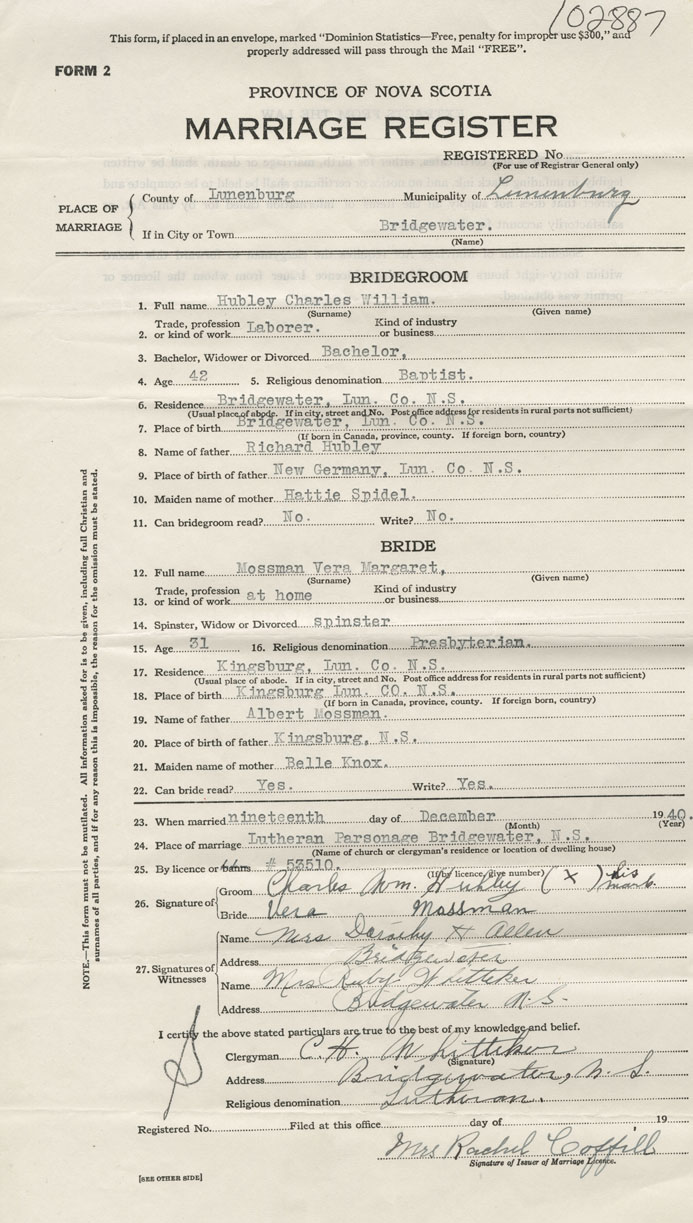 102887
This form, if placed in an envelope, marked "Dominion Statistics—Free, penalty for improper use $300," and
properly addressed will pass through the Mail "FREE".
FORM 2
PROVINCE OF NOVA SCOTIA
MARRIAGE REGISTER
REGISTERED No.
(For use of Registrar General only)
PLACE OF MARRIAGE
County of Lunenburg Municipality of Lunenburg
If in City or Town Bridgewater.
(Name)
BRIDEGROOM
1. Full name Hubley Charles William.
(Surname) (Given name)
2. Trade, profession or kind of work Laborer. Kind of industry or business
3. Bachelor, Widower or Divorced Bachelor,
4. Age 42 5. Religious denomination Baptist.
6. Residence Bridgewater, Lun. Co. N.S.
(Usual place of abode. If in city, street and No. Post office address for residents in rural parts not sufficient)
7. Place of birth Bridgewater, Lun. Co. N.S.
(If born in Canada, province, county. If foreign born, country)
8. Name of father Richard Hubley
9. Place of birth of father New Germany, Lun. Co. N.S.
10. Maiden name of mother Hattie Spidel.
11. Can bridegroom read? No. Write? No.
BRIDE
12. Full name Mossman Vera Margaret,
(Surname) (Given name)
13. Trade, profession or kind of work at home Kind of industry or business
14. Spinster, Widow or Divorced spinster
15. Age 31 16. Religious denomination Presbyterian.
17. Residence Kingsburg, Lun. Co. N.S.
(Usual place of abode. If in city, street and No. Post office address for residents in rural parts not sufficient)
18. Place of birth Kingsburg Lun. CO. N.S.
(If born in Canada, province, county. If foreign born, country)
19. Name of father Albert Mossman.
20. Place of birth of father Kingsburg, N.S.
21. Maiden name of mother Belle Knox.
22. Can bride read? Yes. Write? Yes.
23. When married nineteenth day of December 1940.
(Month) (Year)
24. Place of marriage Lutheran Parsonage Bridgewater, N.S.
(Name of church or clergyman's residence or location of dwelling house)
25. By licence or banns # 53510.
(If by licence, give number)
26. Signature of
Groom Charles Wm. Hubley (x) his mark
Bride Vera Mossman
27. Signatures of Witnesses
Name Mrs Dorothy H Allen
Address Bridgewater
Name Mrs Ruby Whitteker
Address Bridgewater N.S.
I certify the above stated particulars are true to the best of my knowledge and belief.
Clergyman C. H. Whitteker
(Signature)
Address Bridgewater, N.S.
Religious denomination Lutheran.
Registered No. Filed at this office day of 19
Mrs Rachel Coffill
Signature of Issuer of Marriage Licence.
[SEE OTHER SIDE]
NOTE.—This form must not be mutilated. All information asked for is to be given, including full Christian and
surnames of all parties, and if for any reason this is impossible, the reason for the omission must be stated.